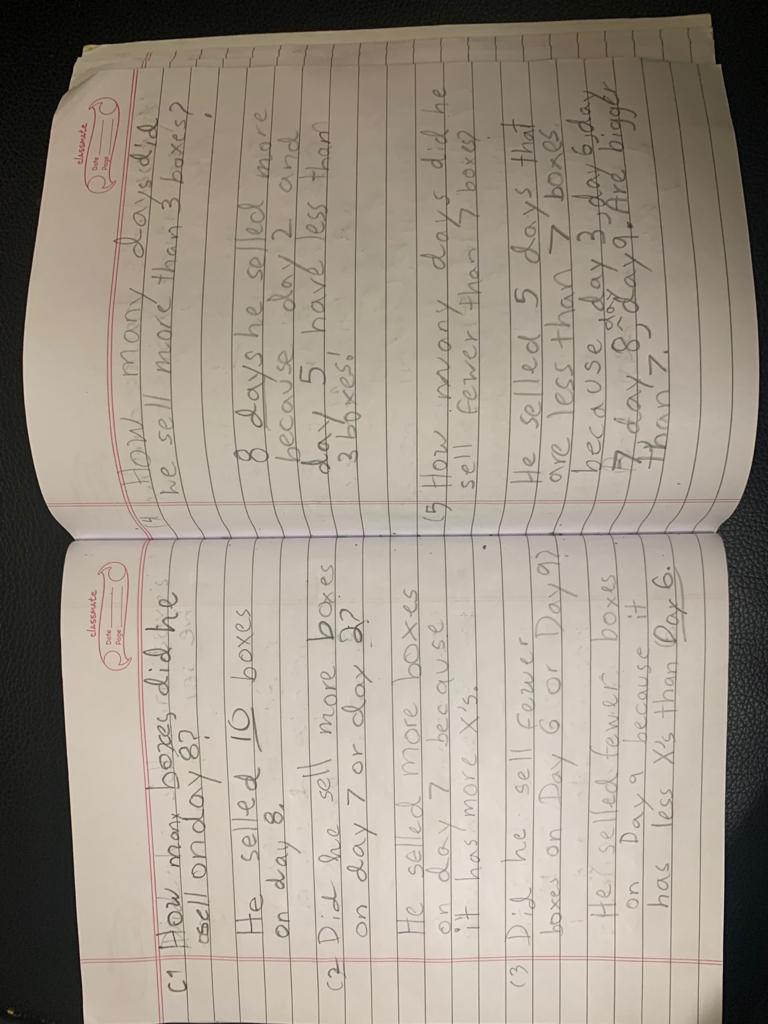 classmate
Date
Page
(1 How many boxes did he
sell on day 8?
He selled 10 boxes
on day 8.
(2 Did he sell more boxes
on day 7 or day 2?
He selled more boxes
on day 7 because
it has more X's.
(3 Did he sell fewer
boxes on Day 6 or Day 9?
He selled fewer boxes
on Day 9 because it
has less X's than Day 6.
classmate
Date
Page
(4 How many days did
he sell more than 3 boxes?
8 days he selled more
because day 2 and
day 5 have less than
3 boxes!
(5 How many days did he
sell fewer than 7 boxes?
He selled 5 days that
are less than 7 boxes
because day 3, day 6, day
7, day 8, day 9. Are bigger
than 7.